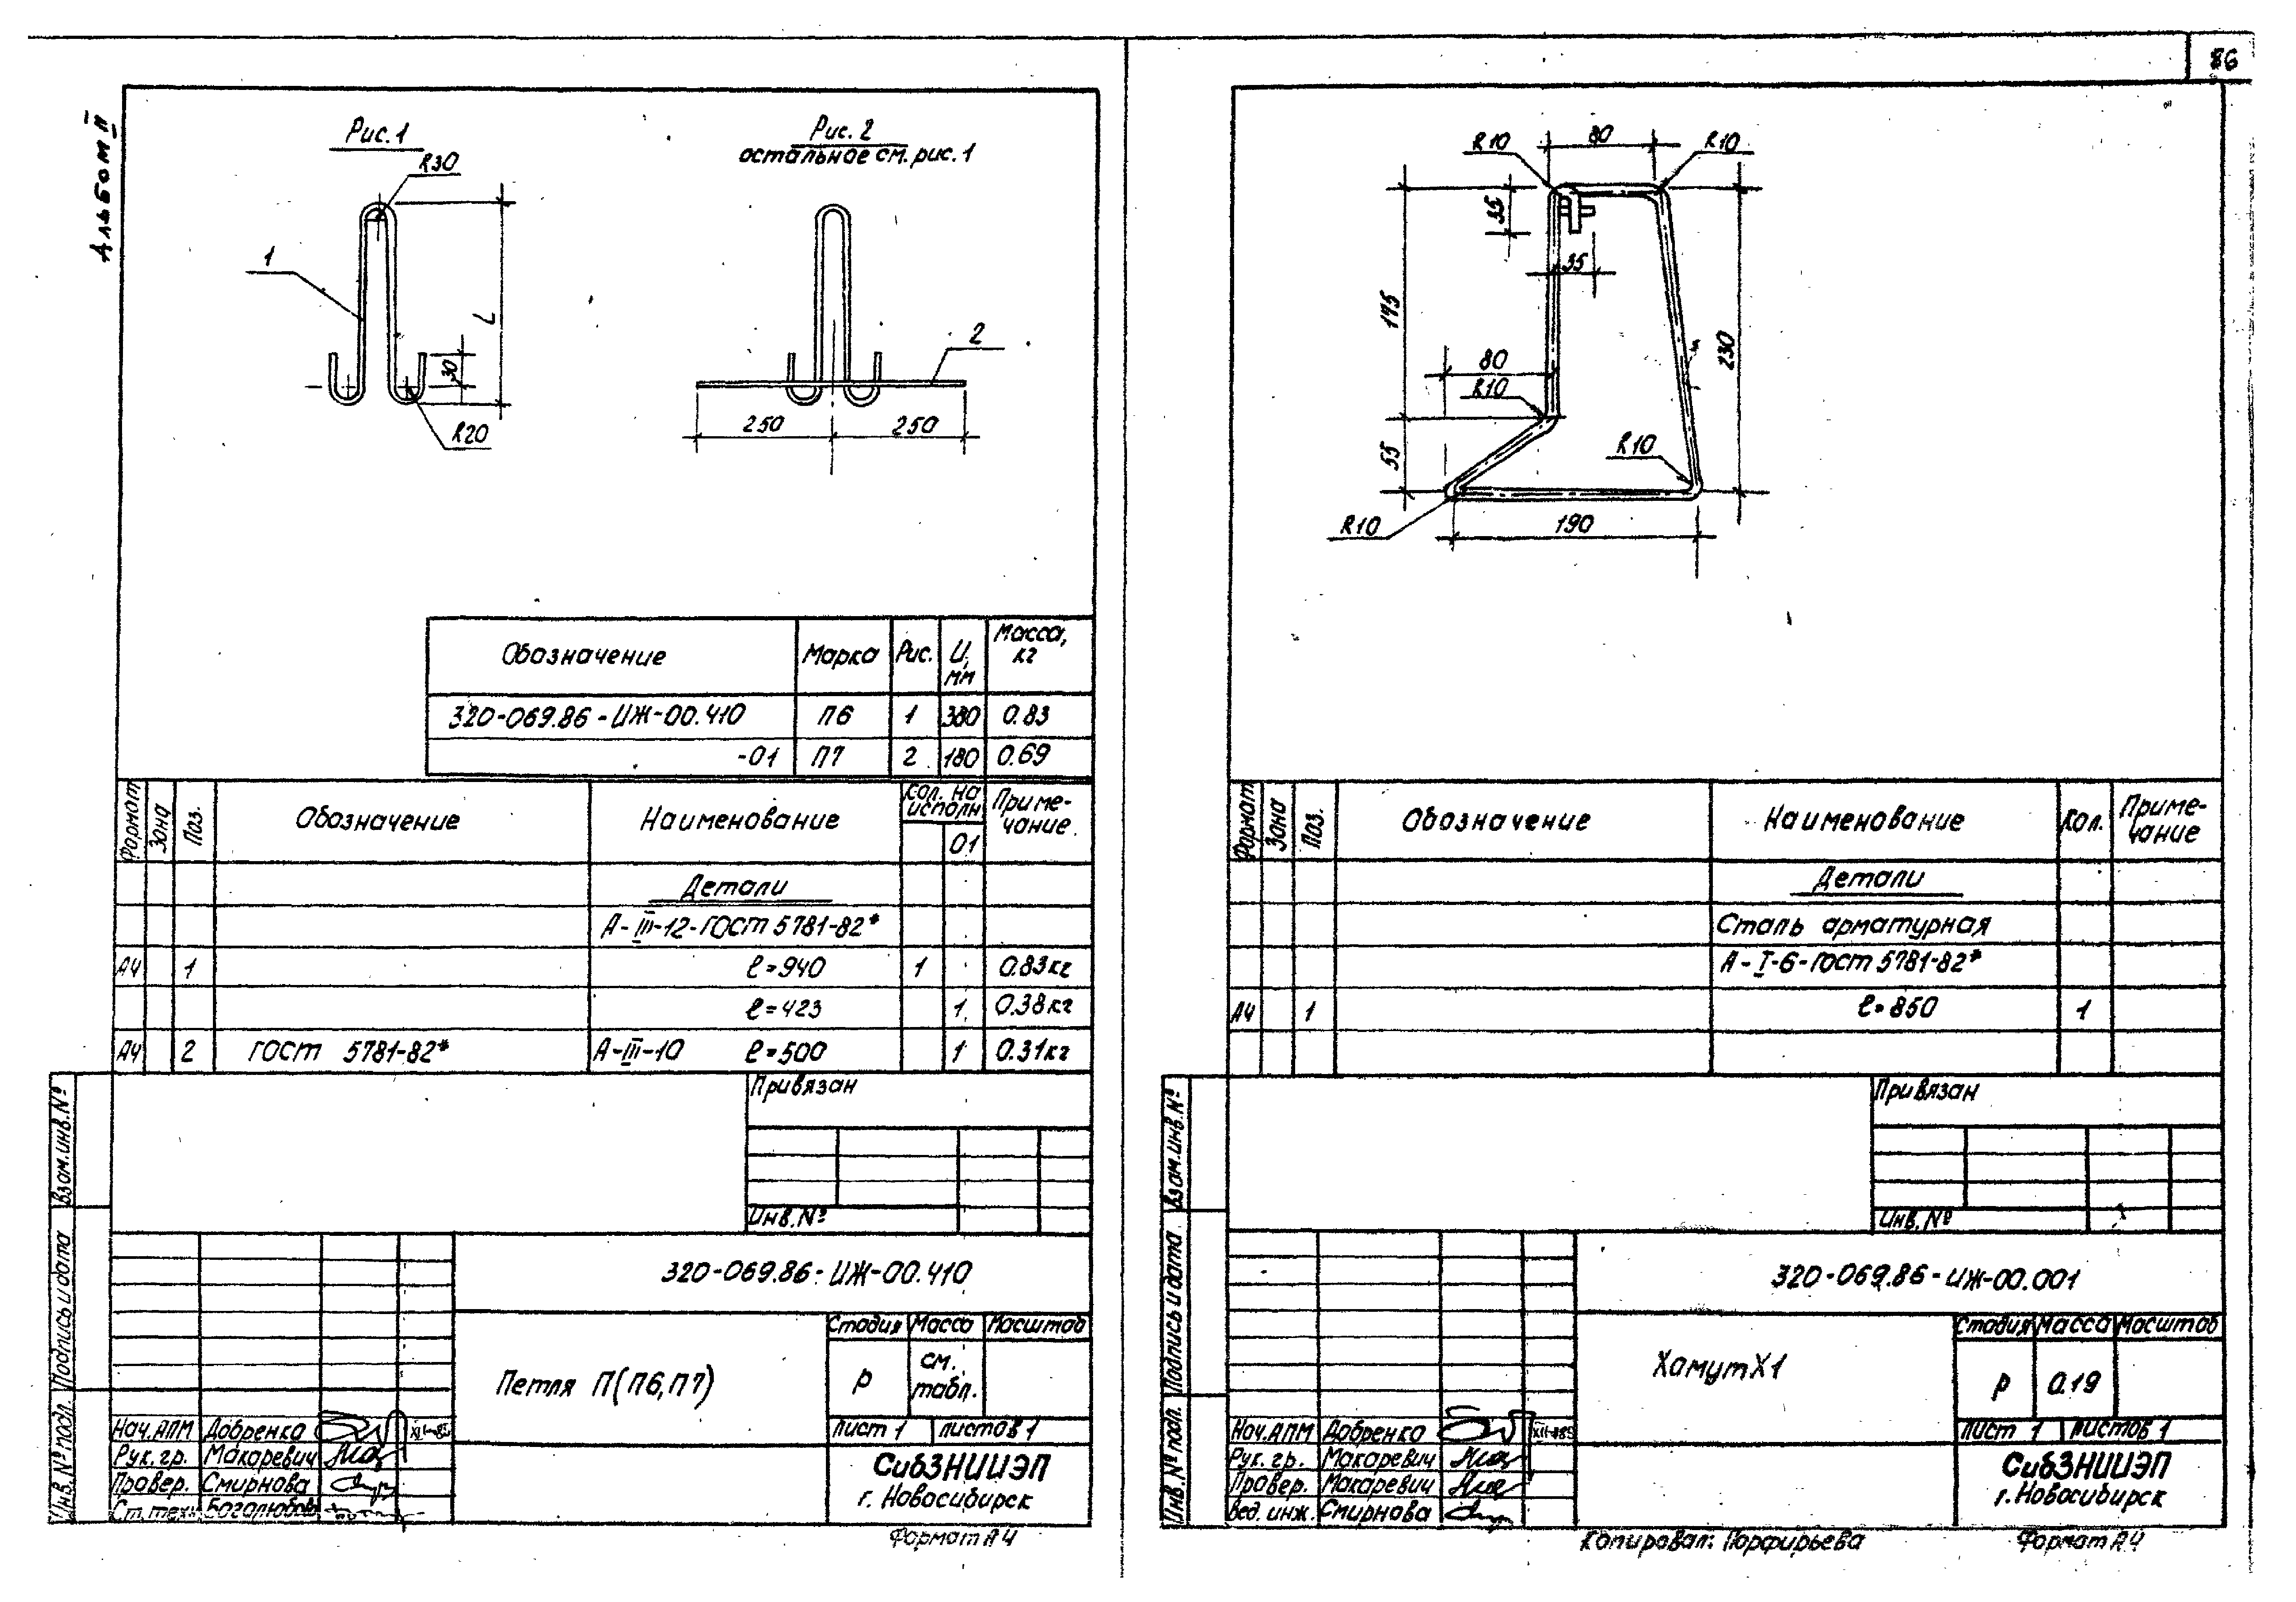 86
Альбом II
Рис. 1
R30
1
L
30
R20
Рис. 2
остальное см. рис. 1
2
250
250
Обозначение Марка Рис. Ц, мм Масса, кг
320-069.86-ИЖ-00.410 П6 1 380 0.83
-01 П7 2 180 0.69
Формат Зона Поз. Обозначение Наименование Кол. на исполн. Приме-
чание
01
Детали
А-III-12-ГОСТ 5781-82*
А4 1 ℓ=940 1 0.83кг
ℓ=423 1 0.38кг
А4 2 ГОСТ 5781-82* А-III-10 ℓ=500 1 0.31кг
Привязан
Инв.№
Взам.инв.№
Подпись и дата
Инв.№ подл.
320-069.86-ИЖ-00.410
Петля П(П6,П7)
Стадия Масса Масштаб
Р см. табл.
Лист 1 Листов 1
Нач.АПМ Добренко XII-85
Рук.гр. Макаревич
Провер. Смирнова
Ст.техн. Боголюбова
СибЗНИИЭП
г. Новосибирск
Формат А4
R10
80
R10
35
35
175
80
R10
55
R10
230
R10
190
Формат Зона Поз. Обозначение Наименование Кол. Приме-
чание
Детали
Сталь арматурная
А-I-6-ГОСТ 5781-82*
А4 1 ℓ=850 1
Привязан
Инв.№
Взам.инв.№
Подпись и дата
Инв.№ подл.
320-069.86-ИЖ-00.001
Хамут Х1
Стадия Масса Масштаб
Р 0.19
Лист 1 Листов 1
Нач.АПМ Добренко XII-85
Рук.гр. Макаревич
Провер. Макаревич
Вед. инж. Смирнова
СибЗНИИЭП
г. Новосибирск
Копировал: Порфирьева
Формат А4